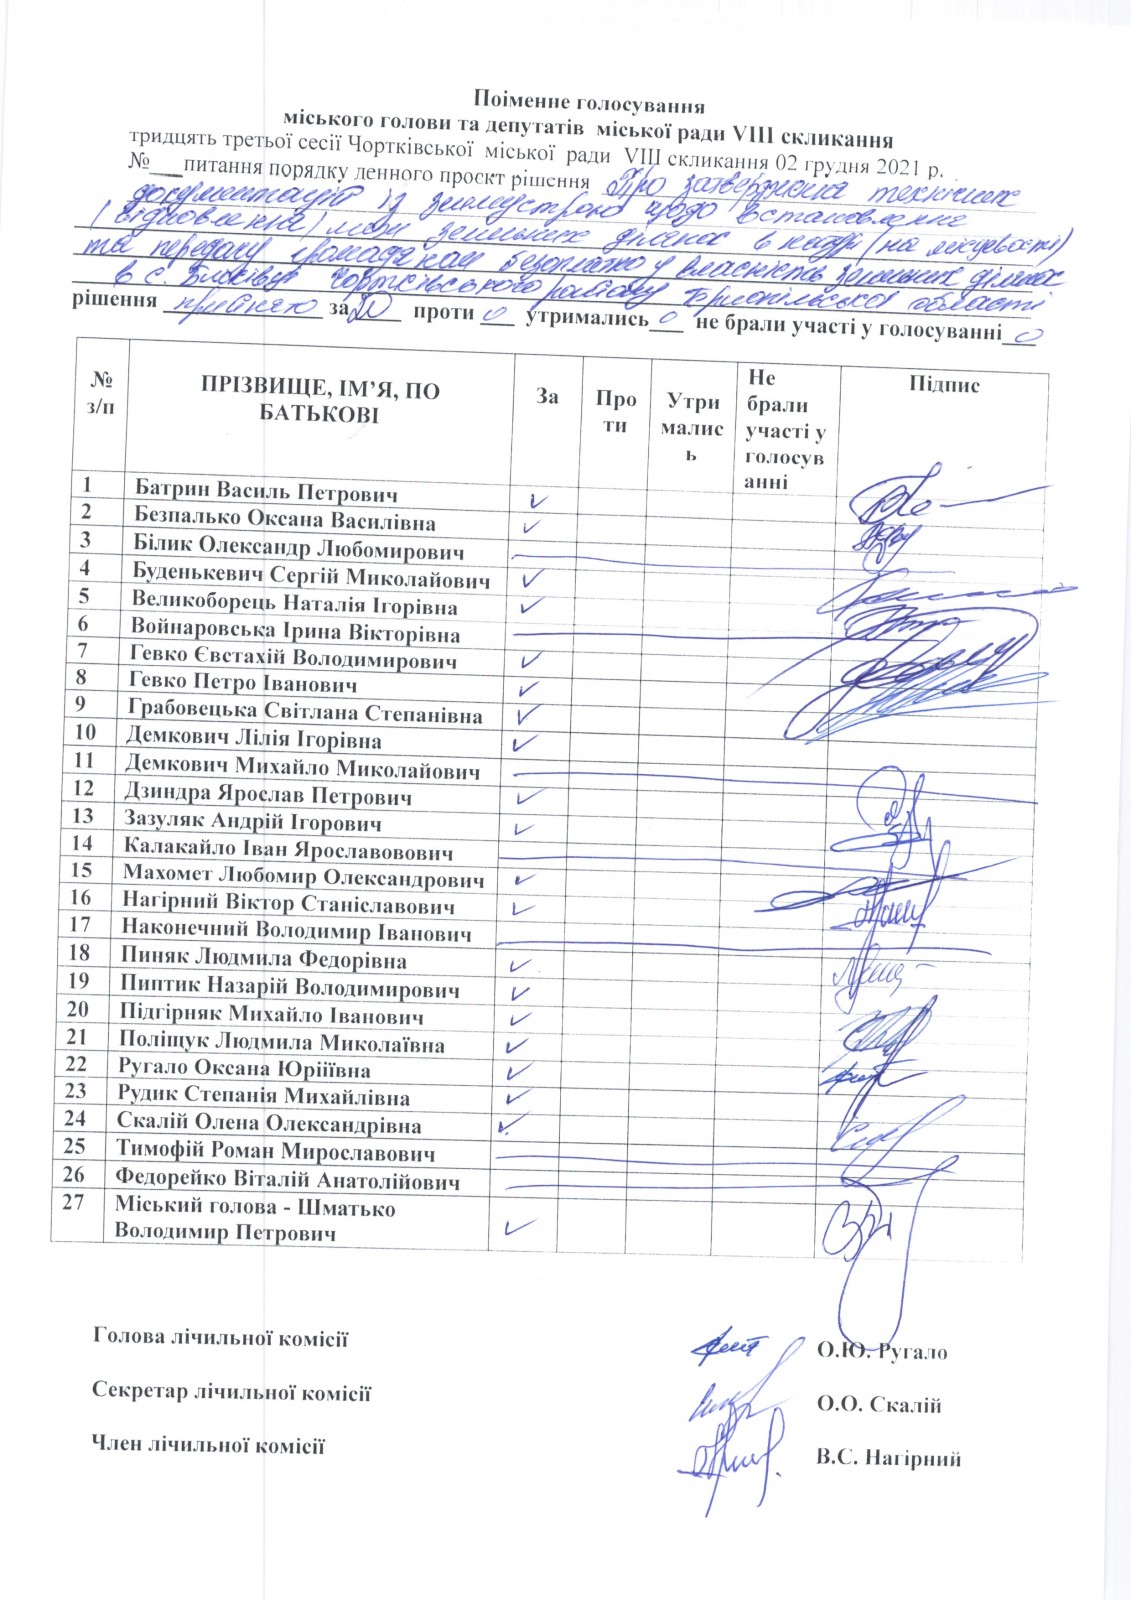 Поіменне голосування
міського голови та депутатів міської ради VIII скликання
тридцять третьої сесії Чортківської міської ради VIII скликання 02 грудня 2021 р.
№___питання порядку денного проєкт рішення Про затвердження технічних
документацій із землеустрою щодо встановлення
(відновлення) меж земельних ділянок в натурі (на місцевості)
та передачу громадянам безоплатно у власність земельних ділянок
в с. Чортківського району Тернопільської області
рішення прийнято за 20 проти 0 утримались 0 не брали участі у голосуванні 0
№ з/п ПРІЗВИЩЕ, ІМ’Я, ПО БАТЬКОВІ За Про ти Утри малис ь Не брали участі у голосув анні Підпис
1 Батрин Василь Петрович ✓
2 Безпалько Оксана Василівна ✓
3 Білик Олександр Любомирович
4 Буденькевич Сергій Миколайович ✓
5 Великоборець Наталія Ігорівна ✓
6 Войнаровська Ірина Вікторівна
7 Гевко Євстахій Володимирович ✓
8 Гевко Петро Іванович ✓
9 Грабовецька Світлана Степанівна ✓
10 Демкович Лілія Ігорівна ✓
11 Демкович Михайло Миколайович
12 Дзиндра Ярослав Петрович ✓
13 Зазуляк Андрій Ігорович ✓
14 Калакайло Іван Ярославовович
15 Махомет Любомир Олександрович ✓
16 Нагірний Віктор Станіславович ✓
17 Наконечний Володимир Іванович
18 Пиняк Людмила Федорівна ✓
19 Пиптик Назарій Володимирович ✓
20 Підгірняк Михайло Іванович ✓
21 Поліщук Людмила Миколаївна ✓
22 Ругало Оксана Юріїївна ✓
23 Рудик Степанія Михайлівна ✓
24 Скалій Олена Олександрівна ✓
25 Тимофій Роман Мирославович
26 Федорейко Віталій Анатолійович
27 Міський голова - Шматько
Володимир Петрович ✓
Голова лічильної комісії О.Ю. Ругало
Секретар лічильної комісії О.О. Скалій
Член лічильної комісії В.С. Нагірний